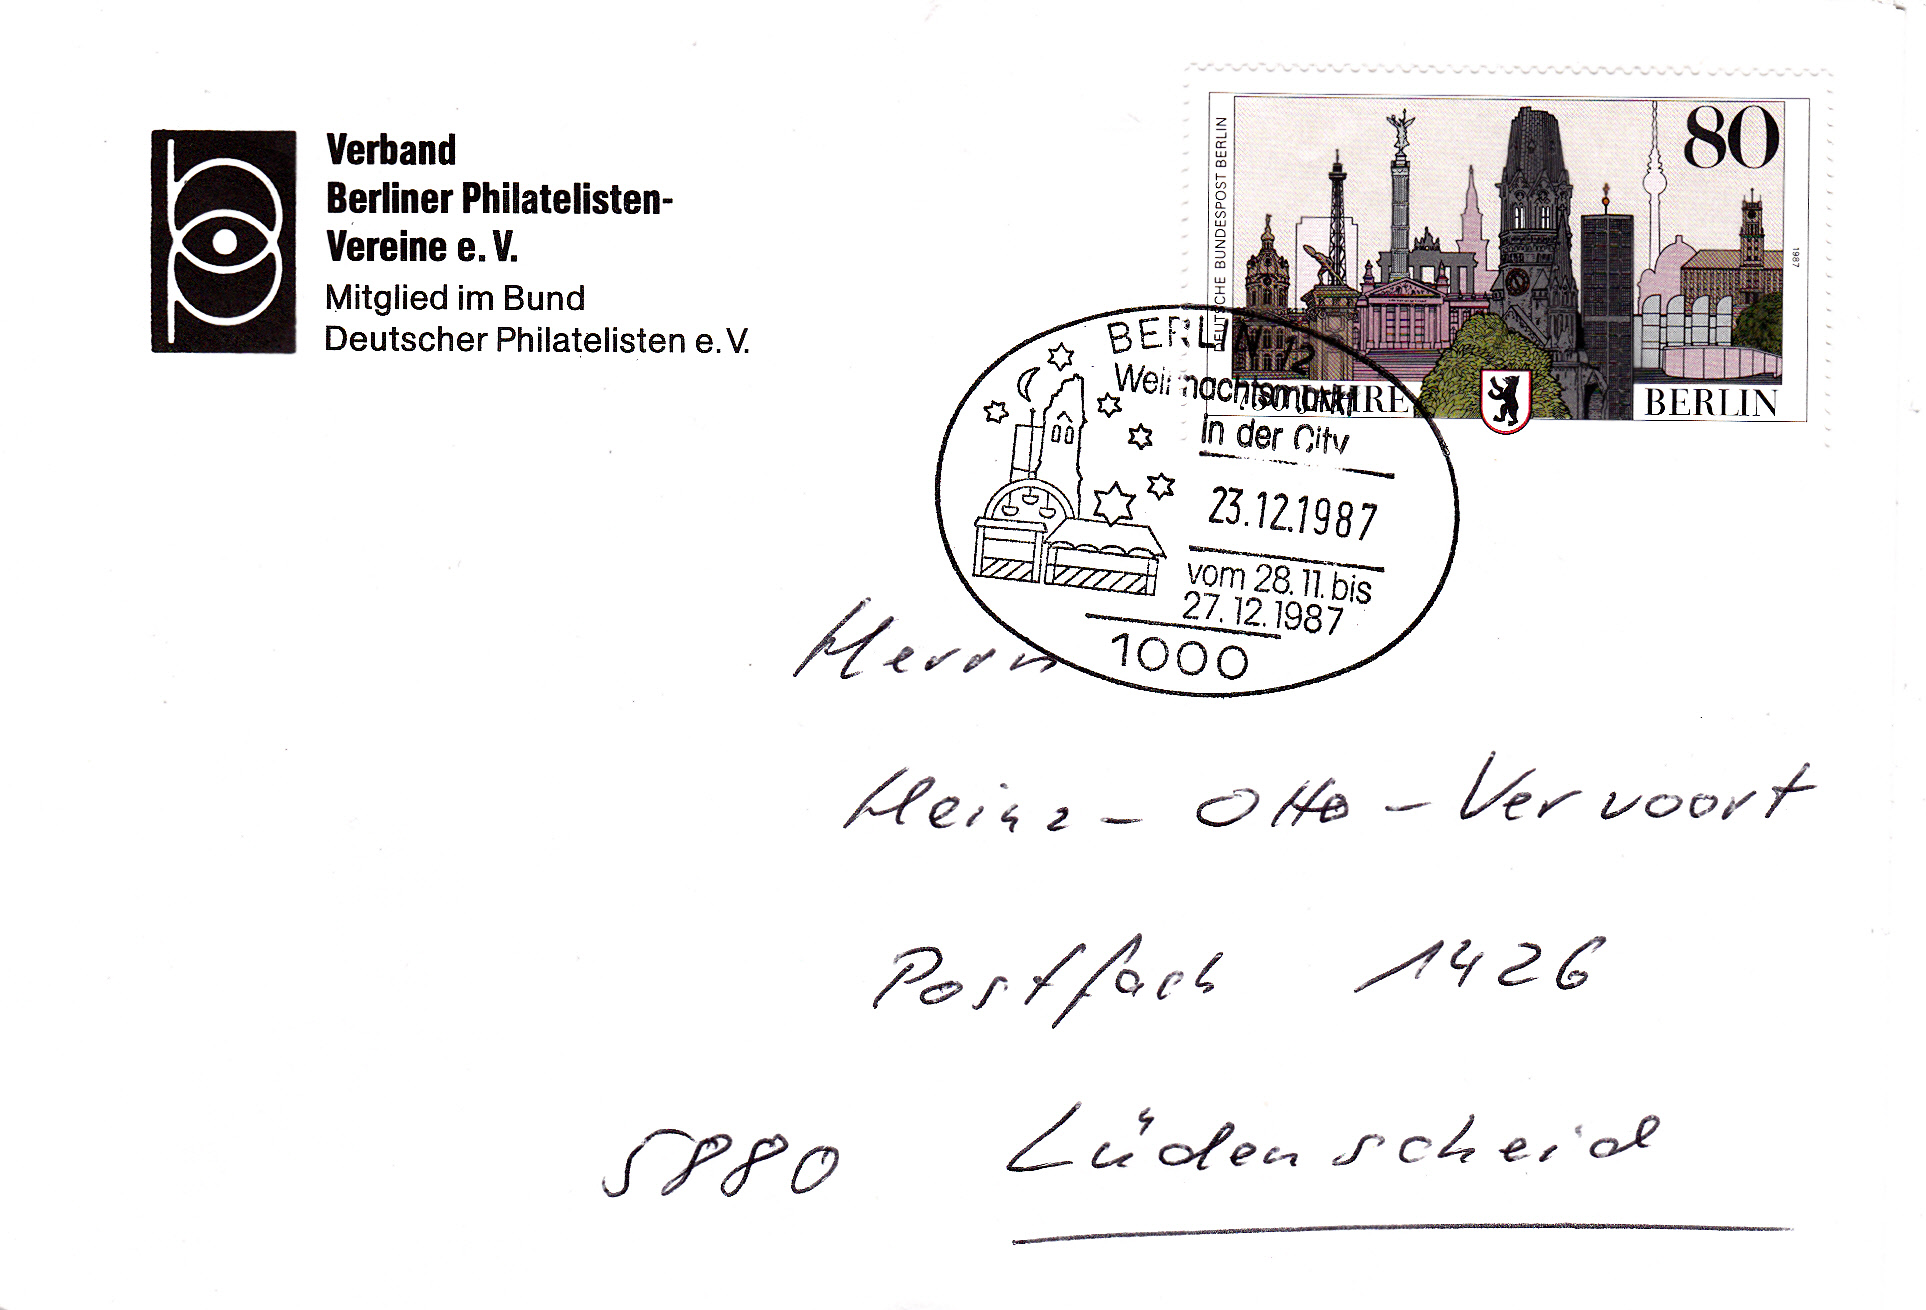 Verband
Berliner Philatelisten-
Vereine e. V.
Mitglied im Bund
Deutscher Philatelisten e. V.
DEUTSCHE BUNDESPOST BERLIN
80
1987
750 JAHRE
BERLIN
BERLIN 12
Weihnachtsmarkt
in der City
23.12.1987
vom 28.11. bis
27.12.1987
1000
Herrn
Heinz - Otto - Vervoort
Postfach 1426
5880 Lüdenscheid